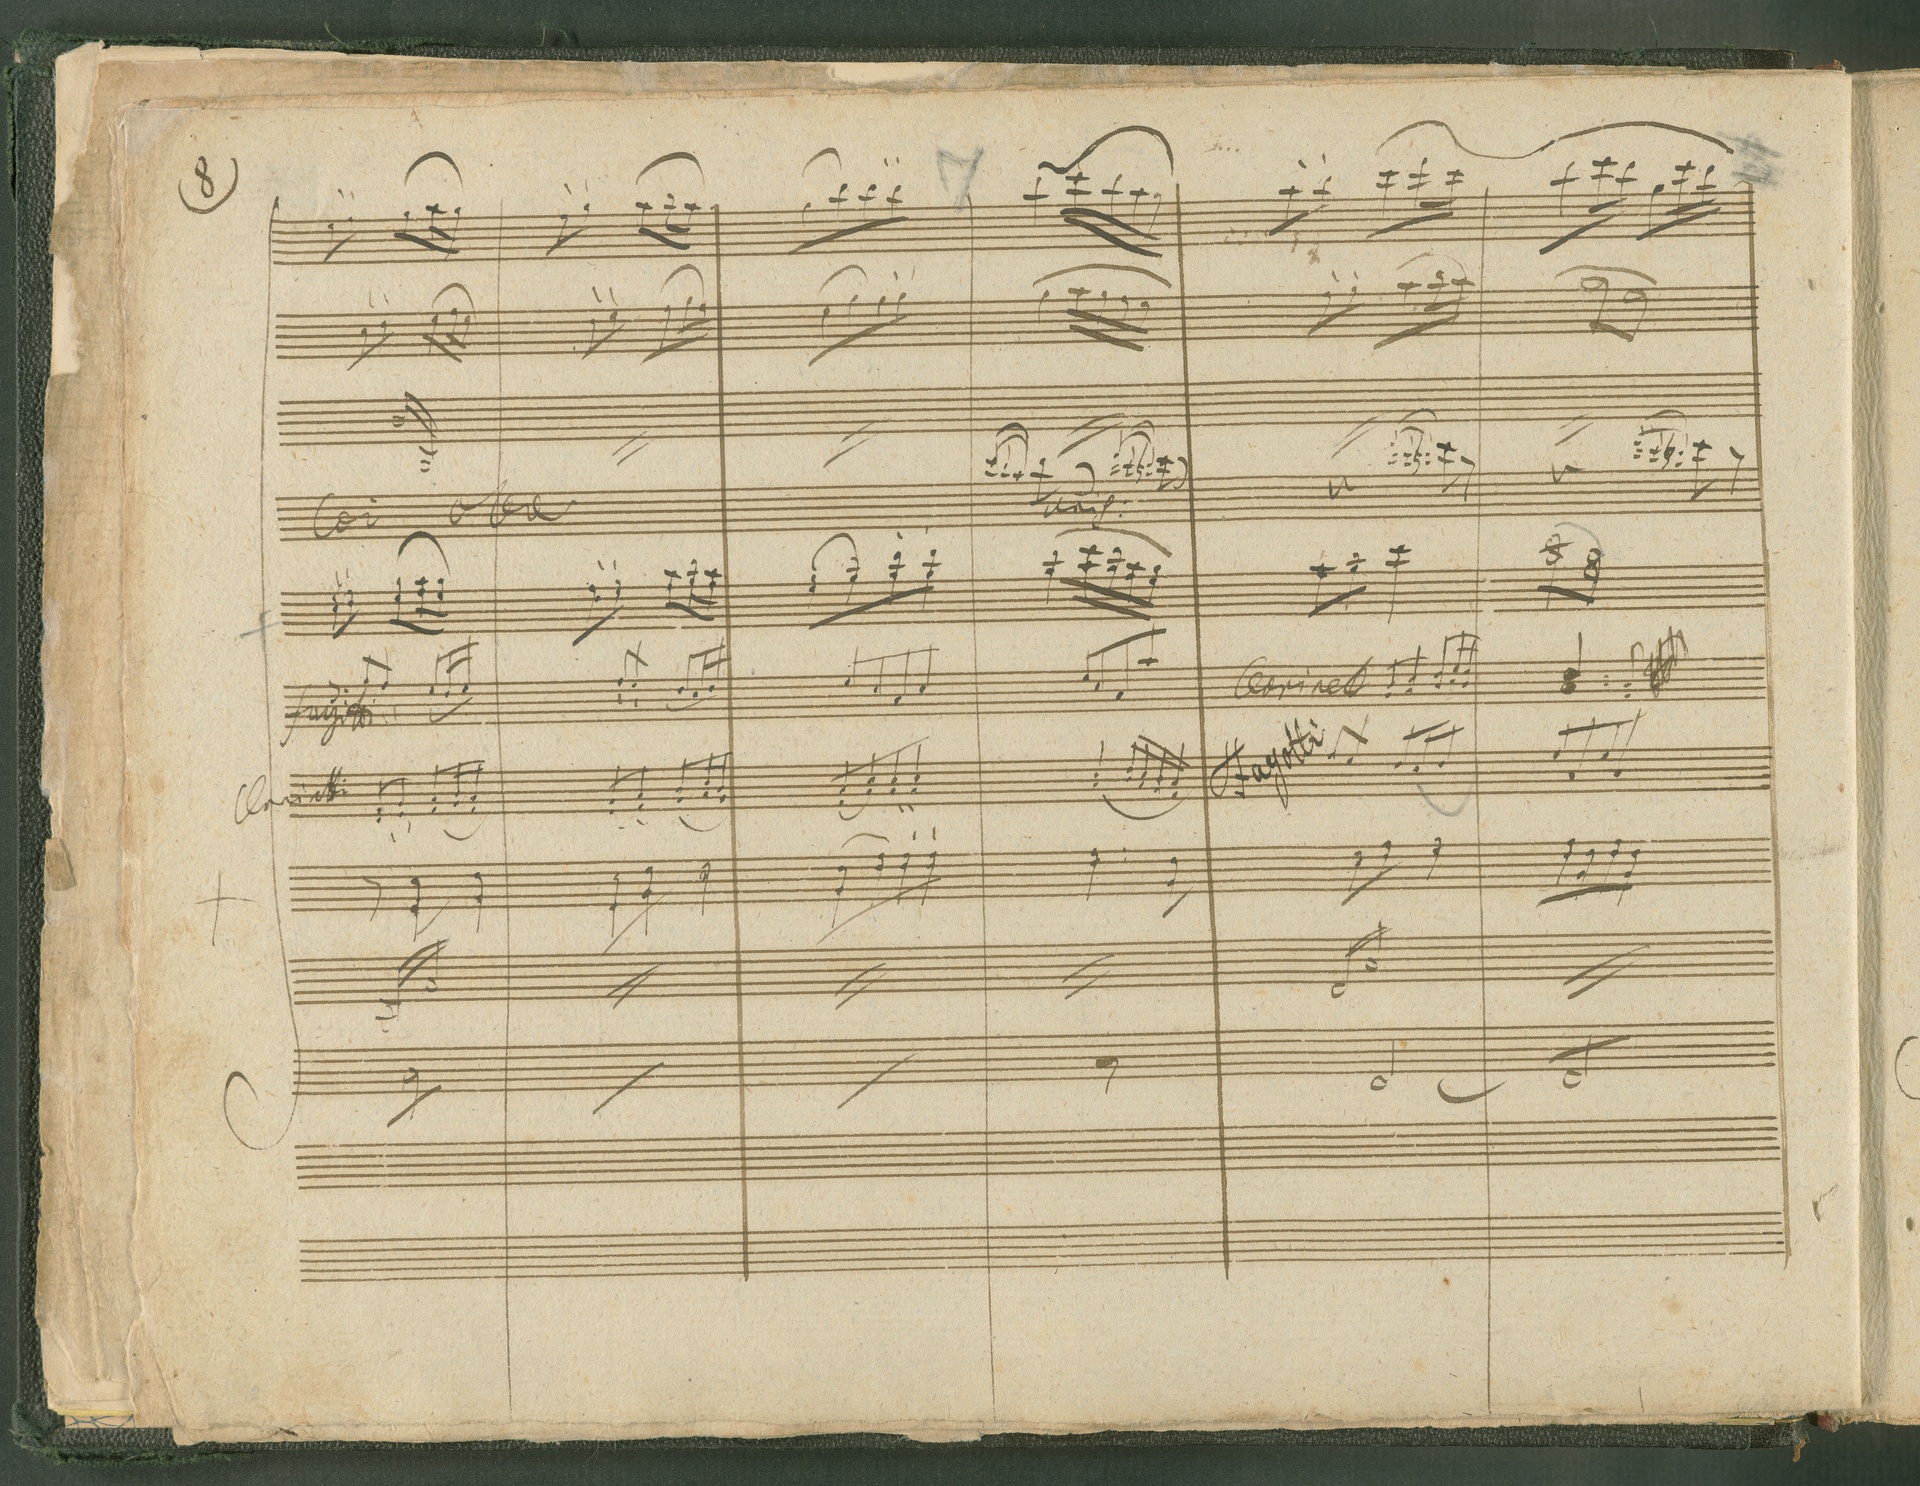 8
Coi oboe
unis:
fagotti
Clarinett
Clarinetti
Fagotti